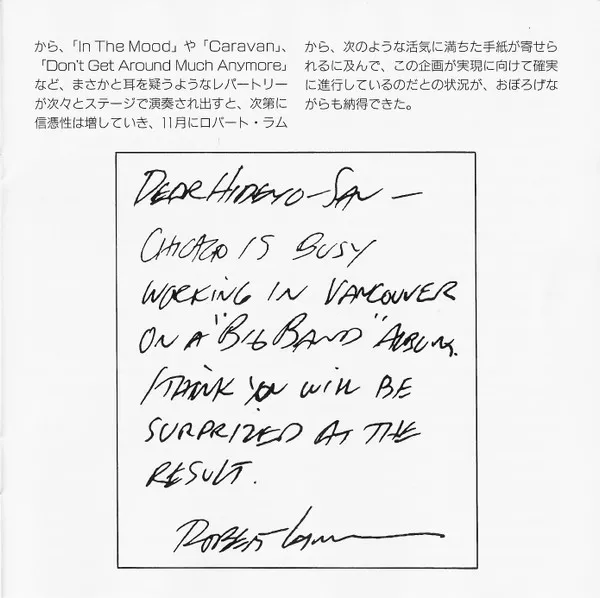 から、「In The Mood」や「Caravan」、
「Don't Get Around Much Anymore」
など、まさかと耳を疑うようなレパートリー
が次々とステージで演奏され出すと、次第に
信憑性は増していき、11月にロバート・ラム
から、次のような活気に満ちた手紙が寄せら
れるに及んで、この企画が実現に向けて確実
に進行しているのだとの状況が、おぼろげな
がらも納得できた。
DEAR HIDEYO-SAN —
CHICAGO IS BUSY
WORKING IN VANCOUVER
ON A "BIG BAND" ALBUM.
I THINK YOU WILL BE
SURPRIZED AT THE
RESULT.
ROBERT Lamm